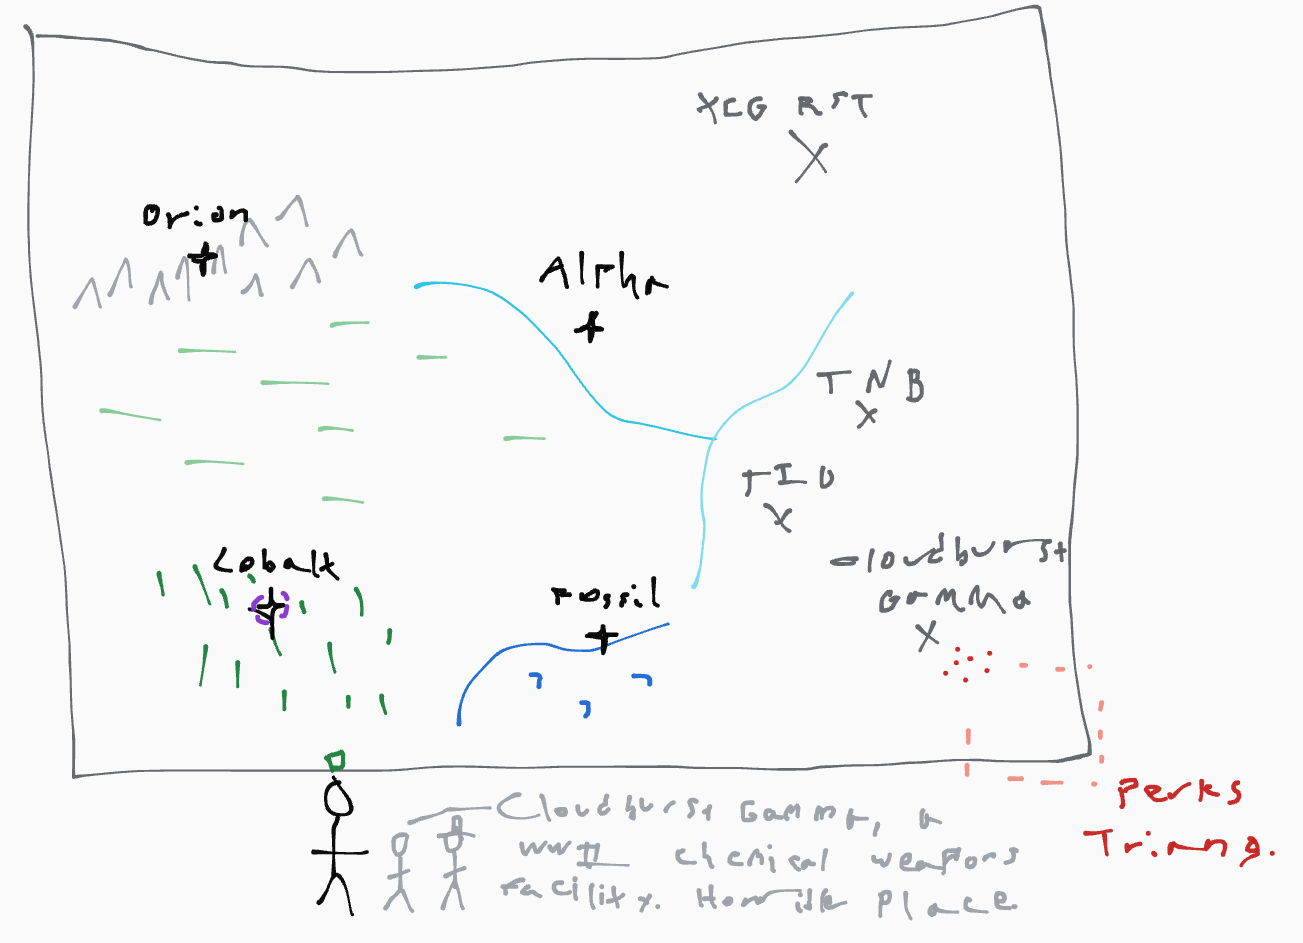 XCG RST
Orion
Alpha
TNB
TID
Cobalt
Cloudburst
Gamma
Fossil
Perks
Triang.
Cloudburst Gamma, a
WWII chemical weapons
facility. Horrible place.